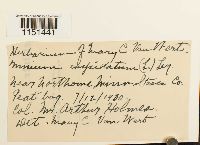 1151441
Herbarium of Mary C Van Wert.
Mnium cuspidatum (L) Ley
Near Northome, Minn Itasca Co.
Peat bog. 7/12/1980
Col. M. Arthur Holmes.
Det. Mary C Van Wert